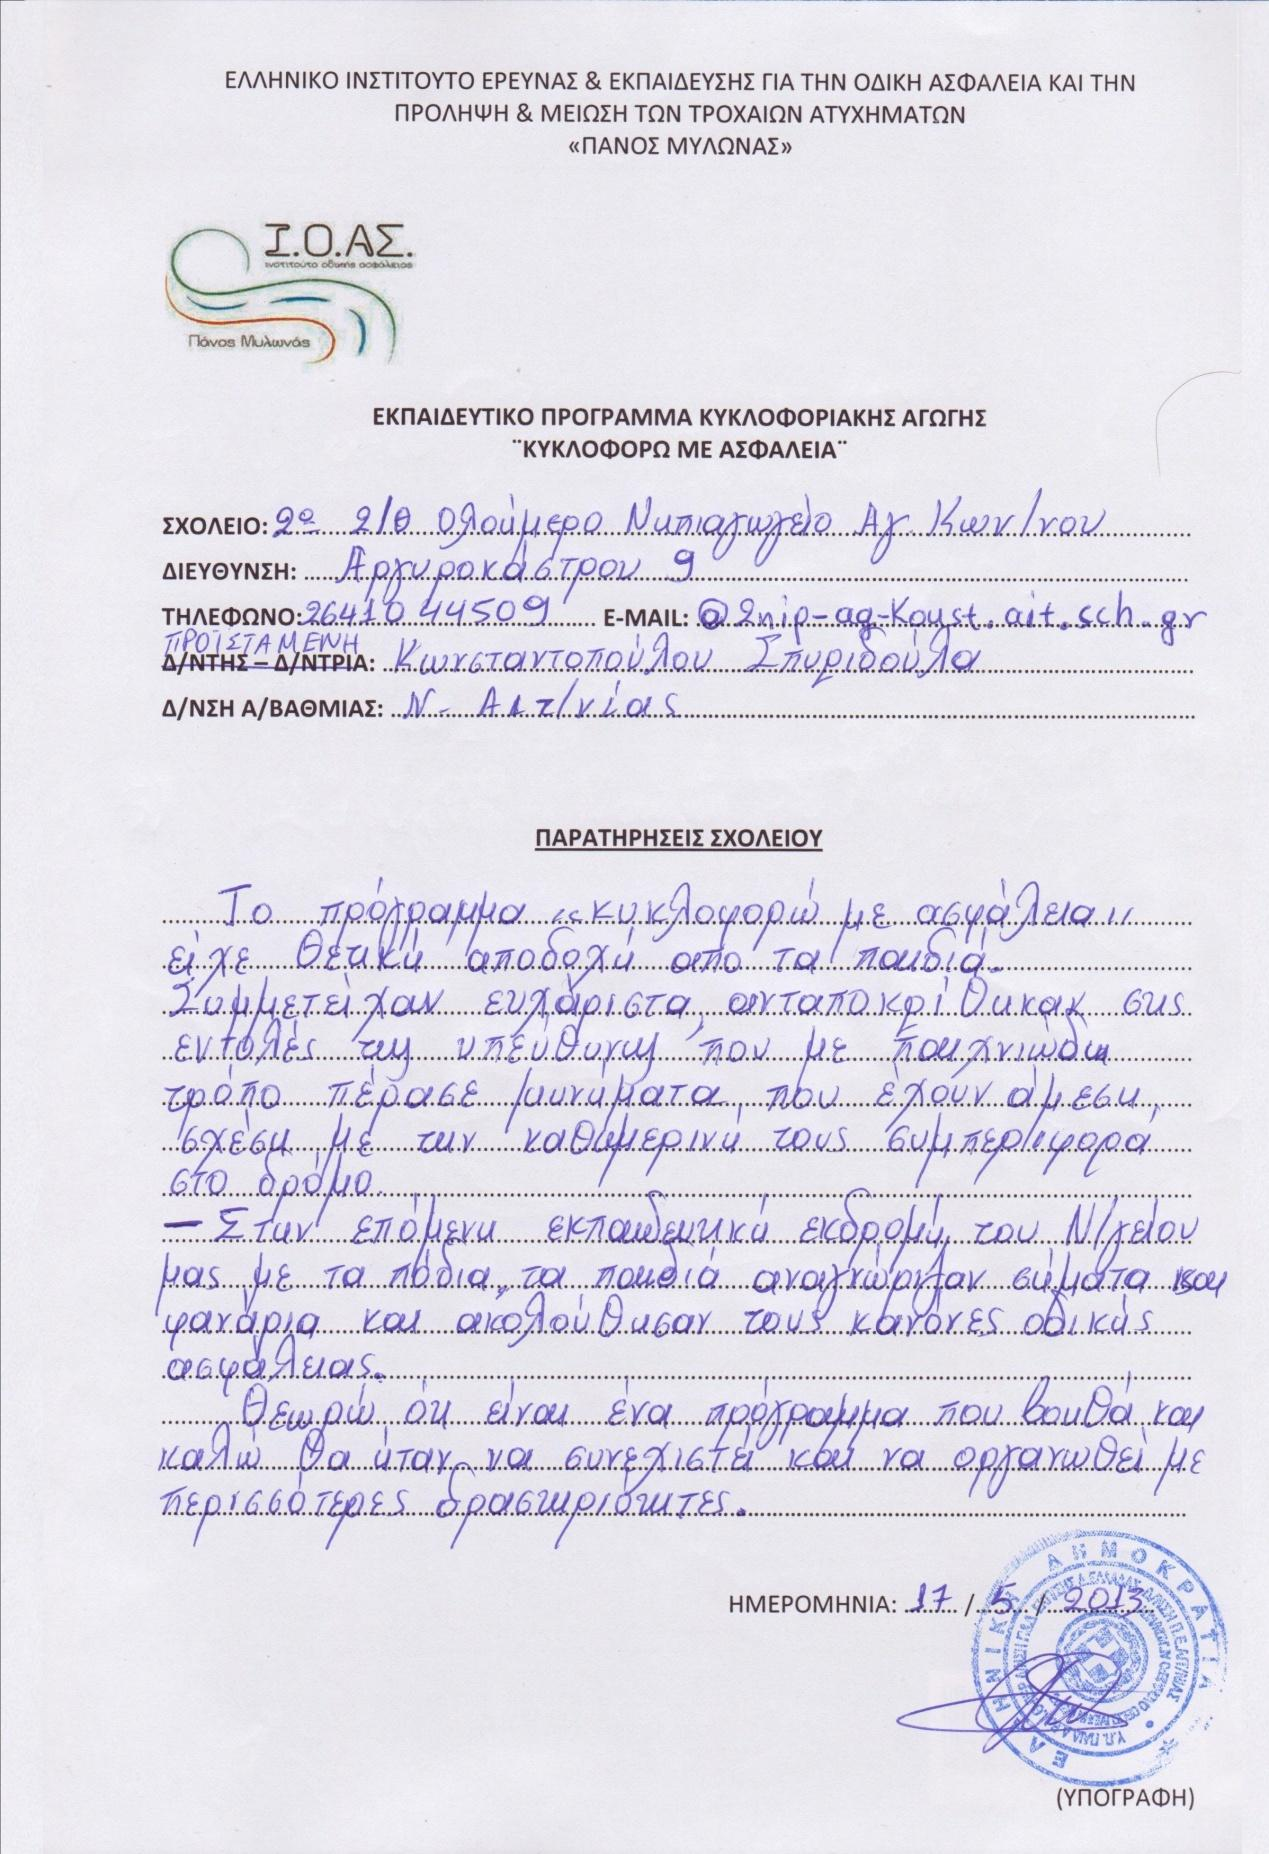 ΕΛΛΗΝΙΚΟ ΙΝΣΤΙΤΟΥΤΟ ΕΡΕΥΝΑΣ & ΕΚΠΑΙΔΕΥΣΗΣ ΓΙΑ ΤΗΝ ΟΔΙΚΗ ΑΣΦΑΛΕΙΑ ΚΑΙ ΤΗΝ
ΠΡΟΛΗΨΗ & ΜΕΙΩΣΗ ΤΩΝ ΤΡΟΧΑΙΩΝ ΑΤΥΧΗΜΑΤΩΝ
«ΠΑΝΟΣ ΜΥΛΩΝΑΣ»
Ι.Ο.ΑΣ.
ινστιτούτο οδικής ασφάλειας
Πάνος Μυλωνάς
ΕΚΠΑΙΔΕΥΤΙΚΟ ΠΡΟΓΡΑΜΜΑ ΚΥΚΛΟΦΟΡΙΑΚΗΣ ΑΓΩΓΗΣ
¨ΚΥΚΛΟΦΟΡΩ ΜΕ ΑΣΦΑΛΕΙΑ¨
ΣΧΟΛΕΙΟ: 2ο 2/θ Ολοήμερο Νηπιαγωγείο Αγ. Κων/νου
ΔΙΕΥΘΥΝΣΗ: Αργυροκάστρου 9
ΤΗΛΕΦΩΝΟ: 26410 44509 E-MAIL: @2nip-ag-Koust.ait.sch.gr
ΠΡΟΪΣΤΑΜΕΝΗ
Δ/ΝΤΗΣ – Δ/ΝΤΡΙΑ: Κωνσταντοπούλου Σπυριδούλα
Δ/ΝΣΗ Α/ΒΑΘΜΙΑΣ: Ν. Αιτ/νίας
ΠΑΡΑΤΗΡΗΣΕΙΣ ΣΧΟΛΕΙΟΥ
Το πρόγραμμα «κυκλοφορώ με ασφάλεια»
είχε θετική αποδοχή απο τα παιδιά.
Συμμετείχαν ευχάριστα, ανταποκρίθηκαν στις
εντολές της υπεύθυνης που με παιχνιώδη
τρόπο πέρασε μηνύματα, που έχουν άμεση,
σχέση με την καθημερινή τους συμπεριφορά
στο δρόμο.
– Στην επόμενη εκπαιδευτική εκδρομή του Ν/γείου
μας με τα πόδια, τα παιδιά αναγνώριζαν σήματα και
φανάρια και ακολούθησαν τους κανόνες οδικής
ασφάλειας.
Θεωρώ ότι είναι ένα πρόγραμμα που βοηθά και
καλώ θα ήταν να συνεχιστεί και να οργανωθεί με
περισσότερες δραστηριότητες.
ΗΜΕΡΟΜΗΝΙΑ: 17 / 5 / 2013
ΕΛΛΗΝΙΚΗ ΔΗΜΟΚΡΑΤΙΑ
(ΥΠΟΓΡΑΦΗ)